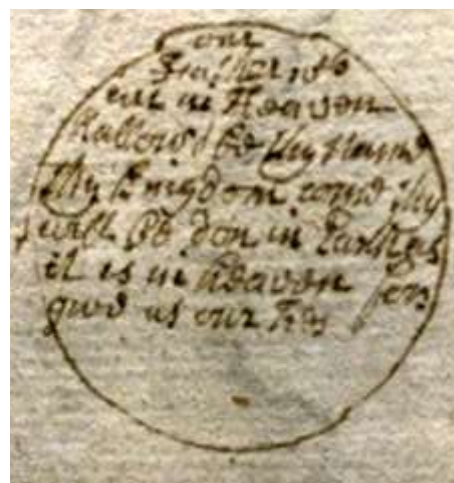 our
Father wch
art in Heaven
Hallowed be thy Name
Thy Kingdom come thy
will be don in Earth as
it is in heaven for
give us our tres